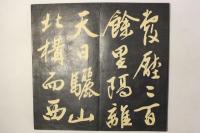 覆壓三百
餘里隔離
天日驪山
北構而西